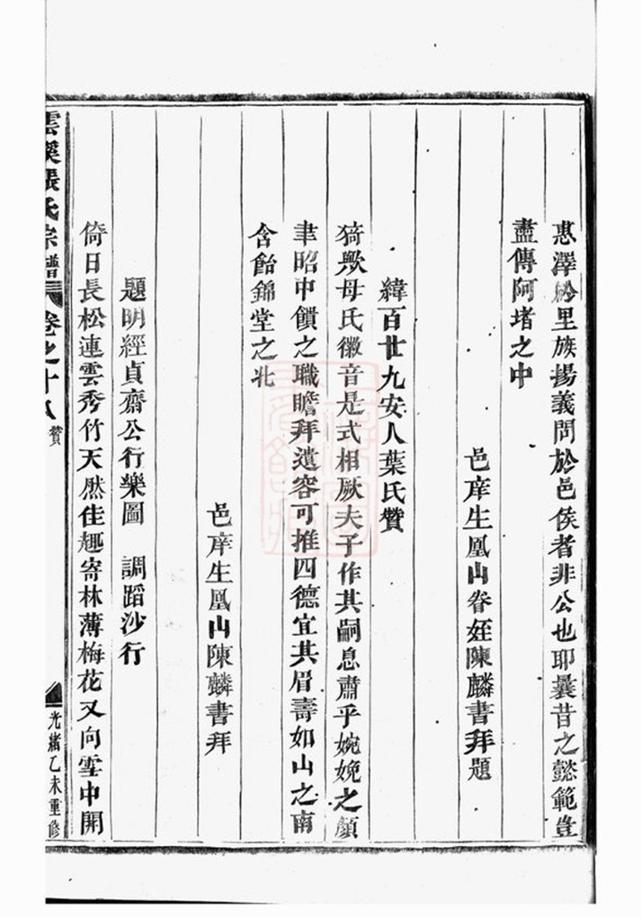 惠澤於里族揚義問於邑侯者非公也耶曩昔之懿範豈
盡傳阿堵之中
邑庠生鳳山眷姪陳麟書拜題
緯百廿九安人葉氏贊
猗歟母氏徽音是式相厥夫子作其嗣息肅乎婉娩之顏
聿昭中饋之職瞻拜遺容可推四德宜其眉壽如山之南
含飴錦堂之北
邑庠生鳳山陳麟書拜
題明經貞齋公行樂圖 調蹈沙行
倚日長松連雲秀竹天然佳趣寄林薄梅花又向雪中開
雲溪張氏宗譜 卷之十八 贊 光緒乙未重修